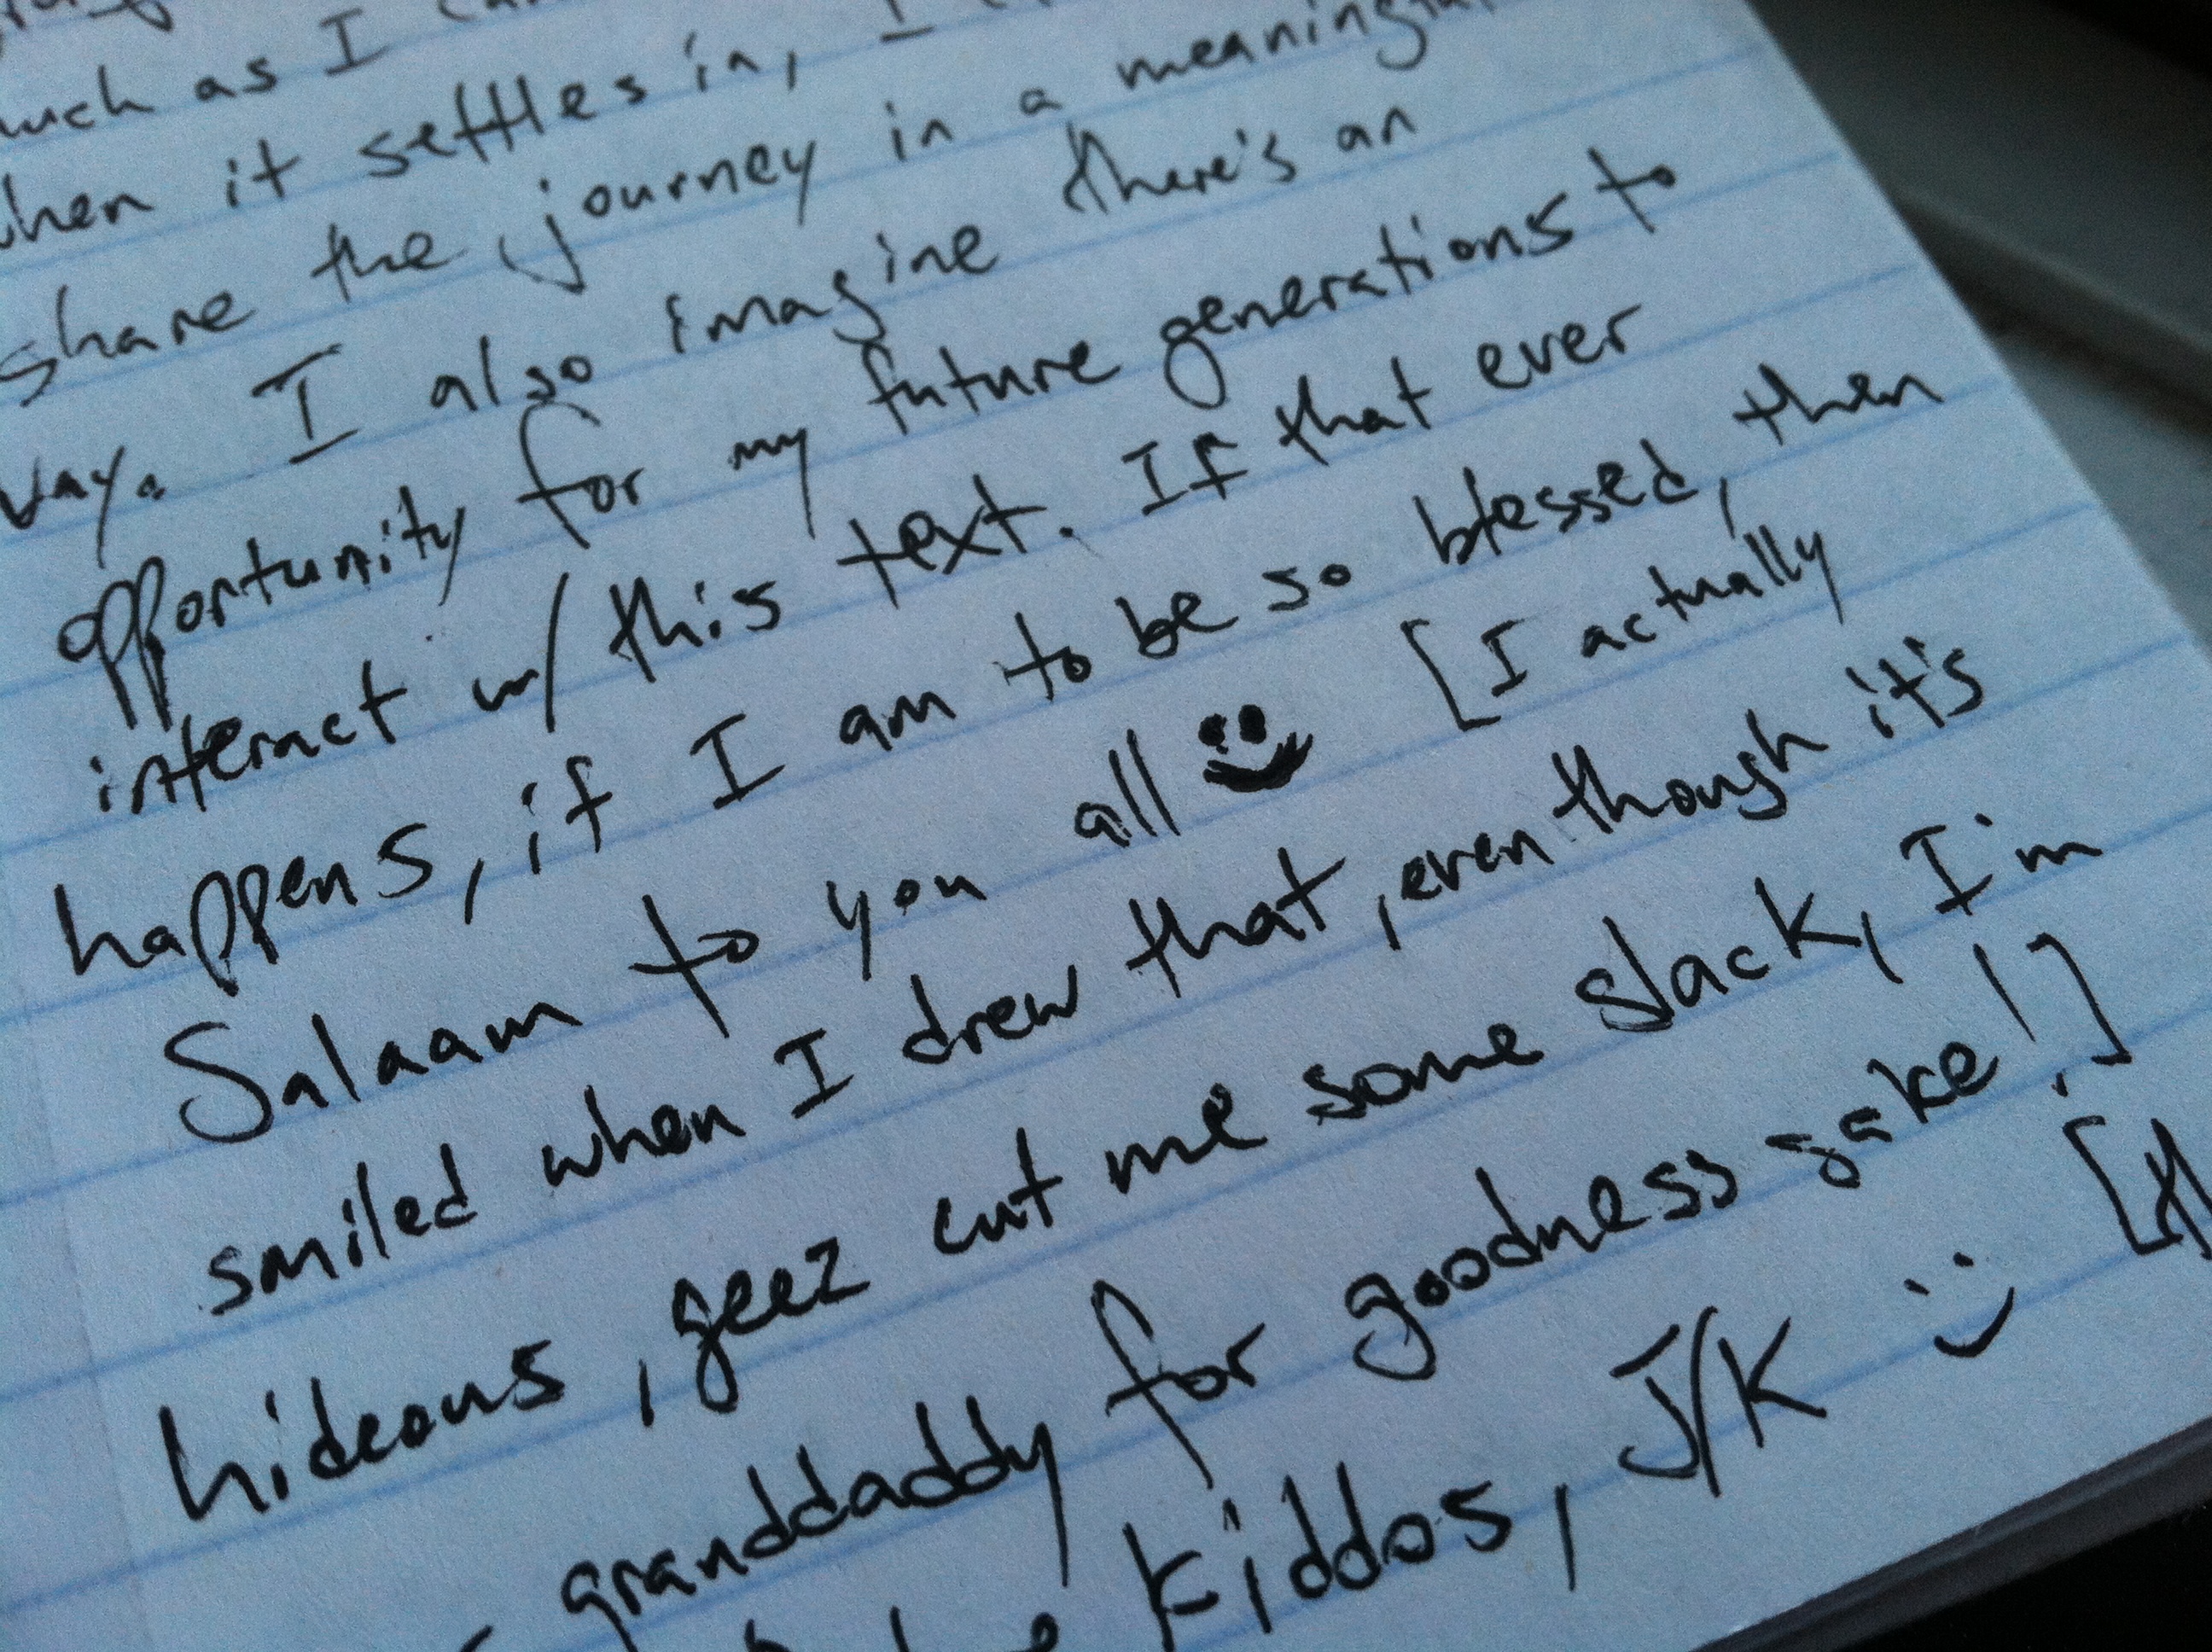 as I
when it settles in, I
share the journey in a meaningful
way. I also imagine there's an
opportunity for my future generations to
interact w/ this text. If that ever
happens, if I am to be so blessed, then
Salaam to you all [I actually
smiled when I drew that, even though it's
hideous, geez cut me some slack, I'm
granddaddy for goodness sake!]
kiddos, J/K :) [